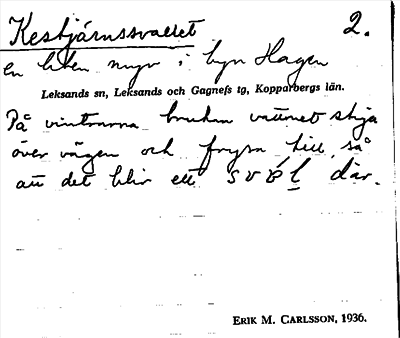 Kestjärnssvallet 2.
en liten myr i byn Hagen
Leksands sn, Leksands och Gagnefs tg, Kopparbergs län.
På vintrarna bruka vattnet stiga
över vägen och frysa till, så
att det blir ett svɒ́l där.
ERIK M. CARLSSON, 1936.